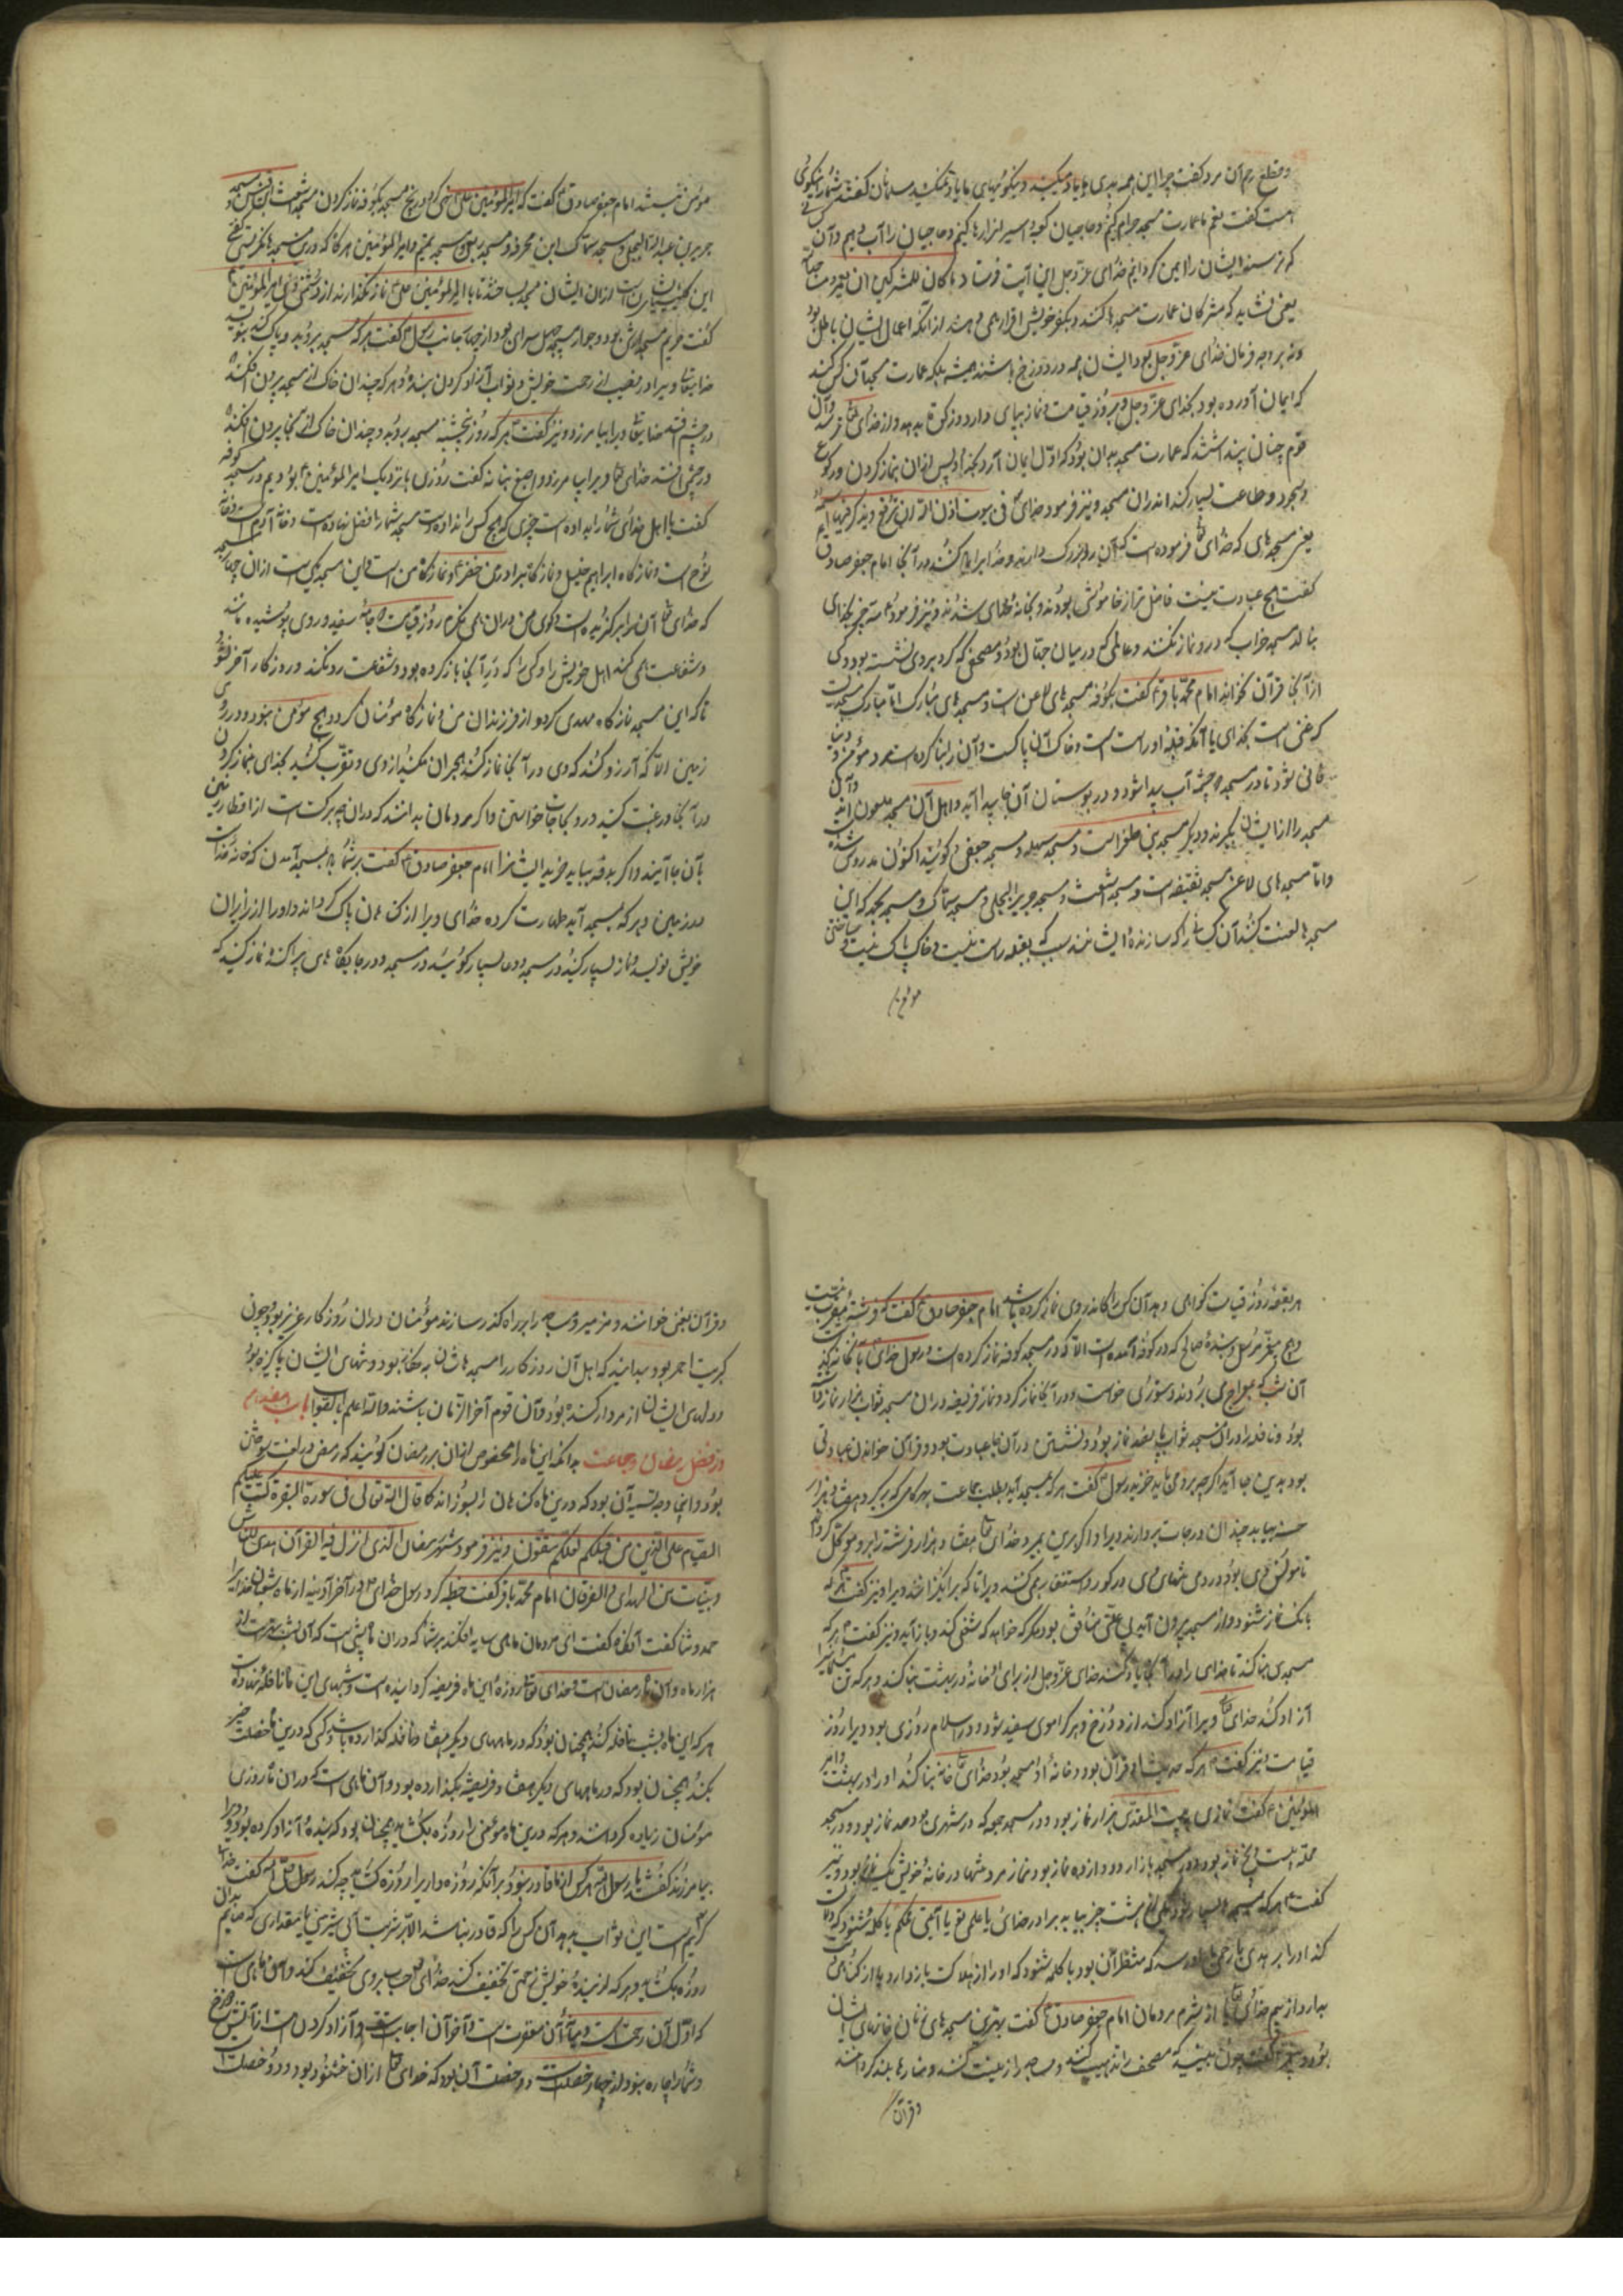 و قطع رحم آن مرد گفت چرا این همه بدی ما یاد میکنید و نیکوئیهای ما یاد نمیکنید مسلمان گفت شما را نیکوئی
هست گفت نعم ما عمارت مسجد حرام کنیم و حاجیان کعبه اسیر از ارها کنیم و حاجیان را آب دهیم و آن کس
که ترسد ایشان را ایمن گردانیم خدای عزوجل این آیت فرستاد ما کان للمشرکین ان یعمروا مساجد الله
یعنی نشاید که مشرکان عمارت مسجدها کنند و بکفر خویش اقرار همی دهند از آنکه اعمال ایشان باطل بود
و نه بر وجه فرمان خدای عزوجل بود و ایشان همه در دوزخ باشند همیشه بلکه عمارت مسجد آن کس کند
که ایمان آورده بود بخدای عزوجل و بروز قیامت و نماز بپای دارد و زکوة بدهد و از خدای تعالی ترسد و آن
قوم چنان پنداشتند که عمارت مسجد بدان بود که اول ایمان آرد بخدا و پس از آن نماز کردن و رکوع
و سجود و طاعت بسیار کند اندران مسجد و نیز فرمود خدای تعالی فی بیوت اذن الله ان ترفع و یذکر فیها اسمه
یعنی مسجدهای که خدای تعالی فرموده است که آن را بزرگ دارند و خدا را یاد کنند در آنجا امام جعفر صادق
گفت هیچ عبادت نیست فاضل تر از خاموشی بودن و بخانه خدای شدن و نیز فرمود سه چیز بخدای
بنالد مسجد خراب که درو نماز نکنند و عالمی که در میان جهال بود و مصحفی که گرد بر وی نشسته بود و کس
از آنجا قرآن نخواند امام محمد باقر گفت بکوفه مسجدهای لاعن است و مسجدهای مبارک اما مبارک مسجدیست
که غنی است بخدای یا آنکه قبله او راست است و خاک آن پاکست و آن را بنا کرده است مرد مؤمن و دنیا
فانی نشود تا در مسجد دو چشمه آب پیدا شود و در بوستان آن جا پیدا آید و اهل آن مسجد ملعون اند و آن
مسجد را از ایشان بگیرند و دیگر مسجد بنی ظفر است و مسجد سهله و مسجد جعفی گویند اکنون مدروس شده
و اما مسجدهای لاعن مسجد ثقیفه است و مسجد اشعث و مسجد جریر البجلی و مسجد سماک و مسجد بجیله که این
مسجدها لعنت کنند آن کسانی را که سازنده ایشانند سبب که بقعه راست نیست و خاک پاک نیست و ساختن
مؤمن
مؤمن نیستند امام جعفر صادق گفت که امیرالمؤمنین علی نهی کرد از پنج مسجد بکوفه نماز کردن مسجد اشعث بن قیس و مسجد
جریر بن عبدالله البجلی و مسجد سماک ابن مخرمه و مسجد شبث و مسجد تیم و امیر المؤمنین هرگاه که درین مسجدها نگریستی گفتی
گفت حریم مسجد ارش بود و جوار مسجد چهل سرای بود از چهار جانب رسول گفت هر که مسجد بروبد و پاک کند بنویسد
خدایتعالی ویرا در نصیب از رحمت خویش و ثواب آزاد کردن بنده و هر که چندان خاک از مسجد بیرون افکند که
در چشم افتد خدایتعالی ویرا بیامرزد و نیز گفت هر که روز پنجشنبه مسجد بروبد و چندان خاک از آنجا بیرون افکند که
در چشم افتد خدای تعالی ویرا بیامرزد و اصبغ نباته گفت روزی با نزدیک امیر المؤمنین بودیم در مسجد کوفه
گفت یا اهل خدای شما را بداده است چیزی که هیچ کس را نداده است مسجد شما را فضل نهاده است و خانه آدم است و خانه
نوح است و نمازگاه ابراهیم خلیل و نمازگاه برادرم خضر و نمازگاه من است و این مسجد یکی است از آن چهار مسجد
که خدای تعالی آن را برگزیده است و گوی من دران همی نگرم روز قیامت در جامه سفید و روی پوشیده مانند
و شفاعت همی کند اهل خویش را و کسی را که در آنجا نماز کرده بود و شفاعت رد نکند و روزگار آخر نشود
تا که این مسجد نمازگاه مهدی گردد از فرزندان من و نمازگاه مؤمنان گردد و هیچ مؤمن نبود در روی
زمین الا که آرزو کند که وی در آنجا نماز کند هجران مکنید از وی و تقرب کنید بخدای بنماز کردن
در آنجا و رغبت کنید در وی بحاجات خواستن و اگر مردمان بدانند که دران چه برکت است از اقطار زمین
بآن جا آیند و اگر بدنبه بباید خزید ایشانرا امام جعفر صادق گفت بر شما باد بمسجد آمدن که خانه خداست
در زمین و هر که بمسجد آید طهارت کرده خدای ویرا از گناهان پاک گرداند و او را از زایران
خویش نویسد و نماز بسیار کنید در مسجد و دعا بسیار گوئید در مسجد و در جایگاه های پراکنده نماز کنید که
هر بقعه روز قیامت گواهی دهد آن کس را که اندر وی نماز کرده باشد امام جعفر صادق گفت که فرشته مقرب نیست
و هیچ پیغمبر مرسل و بنده صالح که در کوفه آمده است الا که در مسجد کوفه نماز کرده است و رسول خدای
آن شب که بمعراج می بردند دستوری خواست و در آنجا نماز کرد و نماز فریضه دران مسجد ثواب هزار نماز دارد
بود و نافله را دران مسجد ثواب پانصد نماز بود و نشستن در آن جا عبادت بود و قرآن خواندن عبادتی
بود بدین جا آید اگر چه بر روی باید خزید رسول گفت هر که بمسجد آید بطلب جماعت بهر گامی که برگیرد هفتاد هزار
حسنه بیابد و چندان درجات بردارند ویرا و اگر بدین بمیرد خدای تعالی هفتاد هزار فرشته را برو موکل کرداند
تا مونس وی بود و در تنهای وی در گور و استغفار همی کنند ویرا تا که برانگیزانند ویرا و نیز گفت هر که
بانگ نماز شنود و از مسجد بیرون آید بی علتی منافق بود مگر که خواهد که شغلی کند و باز آید و نیز گفت هر که
مسجدی بنا کند تا خدای را در آنجا یاد کنند خدای عزوجل از برای او خانه در بهشت بنا کند و هر که
آزاد کند خدای تعالی ویرا آزاد کند از دوزخ و هر کرا موی سفید شود در اسلام روزی بود ویرا روز
قیامت و نیز گفت هر که حدیث او قرآن بود و خانه او مسجد بود خدای تعالی خانه بنا کند او را در بهشت و امیر
المؤمنین گفت نمازی به بیت المقدس هزار نماز بود و در مسجد جمعه که در شهری بود صد نماز بود و در مسجد
محله بیست و پنج نماز بود و در مسجد بازار دوازده نماز بود و نماز مرد تنها در خانه خویش یک نماز بود و نیز
گفت هر که بمسجد بسیار رود یکی از هشت چیز بیابد برادر خدائی یا علمی نو یا آیتی محکم یا کلمه شنود که دلالت
کند او را بر هدی یا رحمتی بدو رسد که منتظر آن بود یا کلمه شنود که او را از هلاکت باز دارد یا از گناهی
بدارد از بیم خدای تعالی یا از شرم مردمان امام جعفر صادق گفت بهترین مسجدهای زنان خانهای ایشان
بود و نیز گفت چون ببینید که مصحف را تذهیب کنند و مساجد را زینت کنند و منارها بلند گردانند
و قرآن
و قرآن بغنی خوانند و مزامیر و مساجد را بر راه گذر سازند مؤمنان دران روزگار عزیز بود چون
کبریت احمر بود بدانید که اهل آن روزگار را مسجدهاشان بیگانه بود و تنهای ایشان پاکیزه بود
و دلهای ایشان از مردار گنده بود و آن قوم آخر الزمان باشند والله اعلم بالصواب باب هفدهم
در فضل رمضان و جماعت بدانکه این ماه را مخصوص از آن بر رمضان گویند که رمض در لغت سوختن
بود و اینجا وجه تسمیه آن بود که درین ماه گناهان را بسوزاند کما قال الله تعالی فی سورة البقرة کتب علیکم
الصیام کما کتب علی الذین من قبلکم لعلکم تتقون و نیز فرمود شهر رمضان الذی انزل فیه القرآن هدی للناس
و بینات من الهدی والفرقان امام محمد باقر گفت خطبه کرد رسول خدای در آخر آدینه از ماه شعبان خدایرا
حمد و ثنا گفت آنگه گفت ای مردمان ماهی سایه افکند بر شما که دران ماه شبی است که آن شب بهتر است از
هزار ماه و آن ماه رمضان است و خدای تعالی روزه این ماه فریضه گردانیده است و شبهای این ماه نافله نهاده است
هر که این ماه بشب نافله کند همچنان بود که در ماههای دیگر هفتاد نافله گذارده باشد و کسی که درین ماه خصلت خیر
بکند همچنان بود که در ماههای دیگر هفتاد فریضه بگذارده بود و آن ماهی است که دران ماه روزی
مؤمنان زیاده گردانند و هر که درین ماه مؤمنی را روزه بگشاید همچنان بود که بنده آزاد کرده بود و ویرا
بیامرزند گفتند یا رسول الله هر کس از ما قادر نبود بر آنکه روزه داری را روزه گشاید چه کند رسول گفت خدا
کریم است این ثواب بدهد آن کس را که قادر نباشد الا بر شربت آبی شیرین یا بمقداری که صایم بدان
روزه بگشاید و هر که از بنده خویش زحمتی تخفیف کند خدای تعالی حساب بر وی تخفیف کند و آن ماهی است
که اول آن رحمت است و میانه آن مغفرت است و آخر آن اجابت است و آزاد کردن است از آتش دوزخ
و شما را چاره نبود از چهار خصلت دو خصلت آن بود که خدای تعالی از آن خشنود بود و دو خصلت